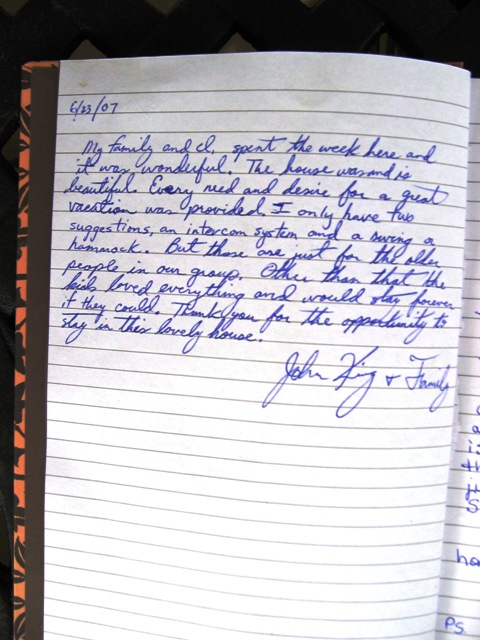 6/23/07
My family and I, spent the week here and
it was wonderful. The house was and is
beautiful. Every need and desire for a great
vacation was provided. I only have two
suggestions, an intercom system and a swing a
hammock. But those are just for the older
people in our group. Other than that the
kids loved everything and would stay forever
if they could. Thank you for the opportunity to
stay in this lovely house.
John King & Family
ha
PS